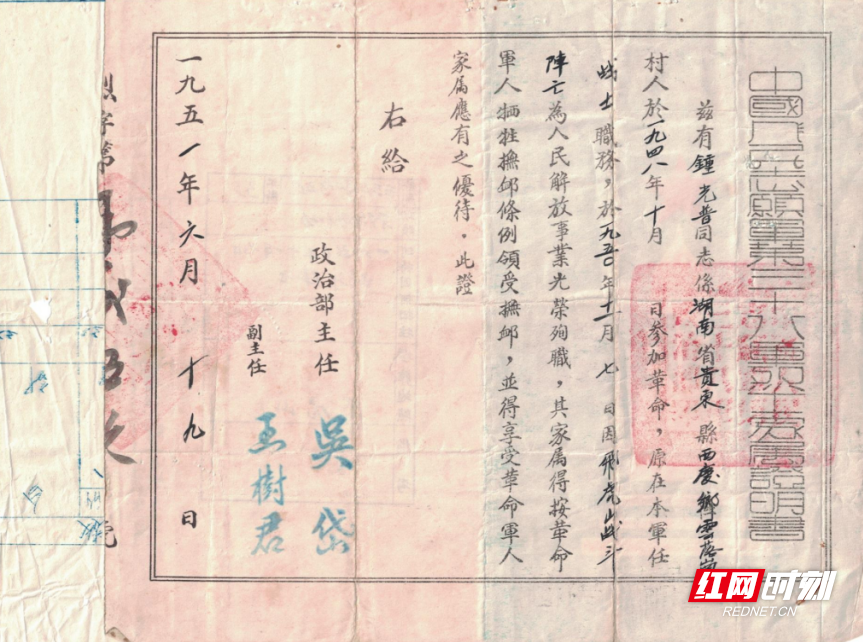 中國人民志願軍第三十八軍烈士家屬證明書
茲有鍾光普同志係湖南省貴東縣西慶鄉雲落
村人於一九四八年十月 日參加革命，原在本軍任
战士職務，於一九五〇年十一月七日因飛虎山战斗
陣亡為人民解放事業光榮殉職，其家属得按革命
軍人牺牲撫邺條例領受撫邺，並得享受革命軍人
家属應有之優待，此證
右給
政治部主任 吳岱
副主任 王樹君
一九五一年六月十九日
烈字第
號
红网时刻
REDNET.CN